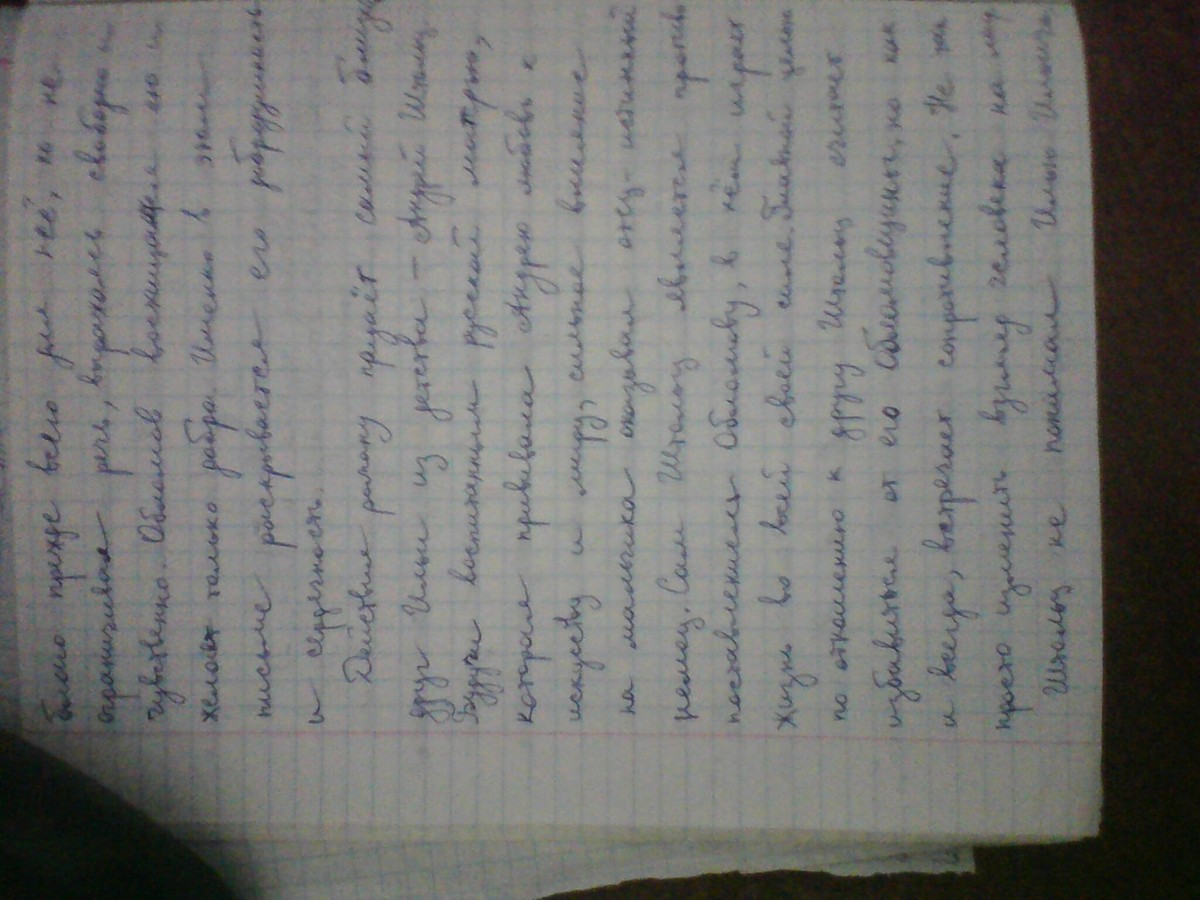 было прежде всего для неё, но не
ограничивая речь, выражалось свободно и
чувственно. Обломов восхищается ею и
желает только добра. Именно в этом
письме раскрывается его добродушность
и сердечность.
Действия роману придаёт самый близкий
друг Ильи из детства - Андрей Штольц.
Будучи воспитанным русской матерью,
которая прививала Андрею любовь к
искуству и миру, сильное влияние
на мальчика оказывал отец - истинный
немец. Сам Штольц является проти-
поставлением Обломову, в нём играет
жизнь во всей своей силе. Главной целью
по отношению к другу Штольц считает
избавиться от его Обломовщины, но как
и всегда, встречает сопротивление. Не так
просто изменить взгляд человека на мир,
Штольц не понимал Илью Ильича,